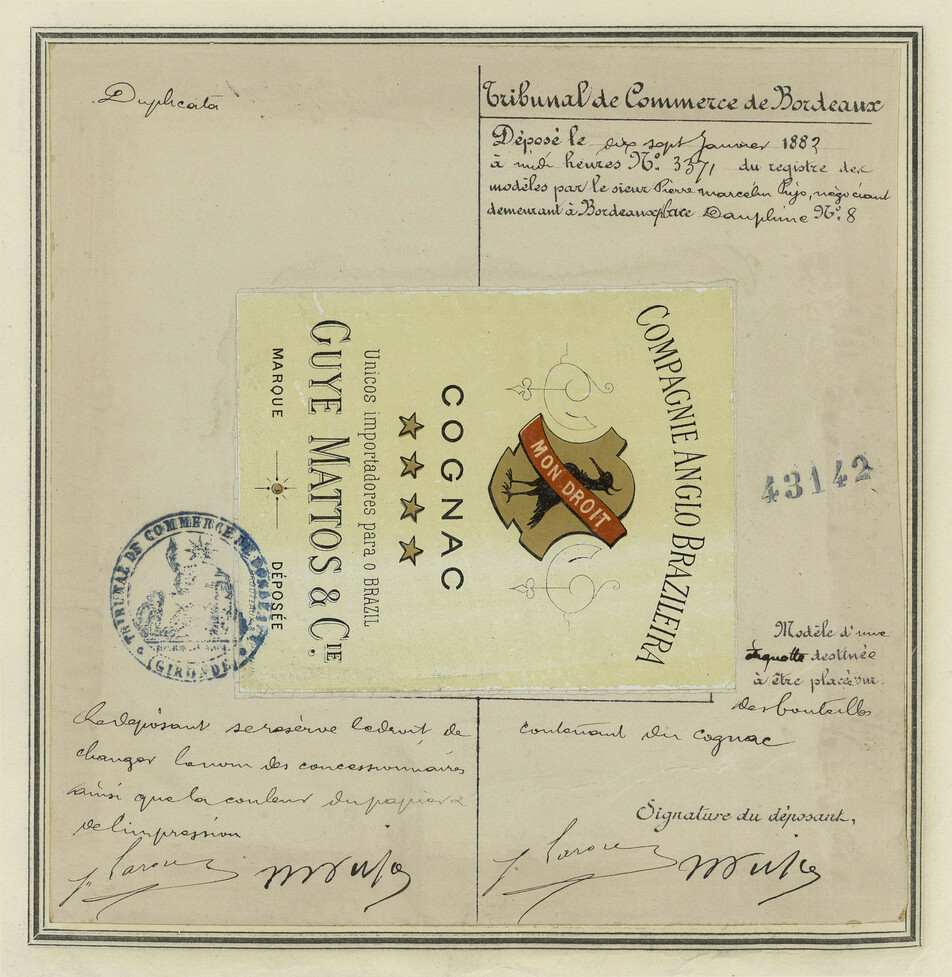 Duplicata
Tribunal de Commerce de Bordeaux
Déposé le dix sept Janvier 1882
à midi heures No. 3371 du registre des
modèles par le sieur Pierre Marcelin Pujo, négociant
demeurant à Bordeaux place Dauphine No. 8
COMPAGNIE ANGLO BRAZILEIRA
MON DROIT
COGNAC
Unicos importadores para o BRAZIL
GUYE MATTOS & CIE.
MARQUE DÉPOSÉE
43142
TRIBUNAL DE COMMERCE DE BORDEAUX
(GIRONDE)
Modèle d'une
étiquette destinée
à être placée sur
des bouteilles
contenant du cognac
Le déposant se réserve le droit de
changer le nom des concessionnaires
ainsi que la couleur du papier &
de l'impression
Signature du déposant,